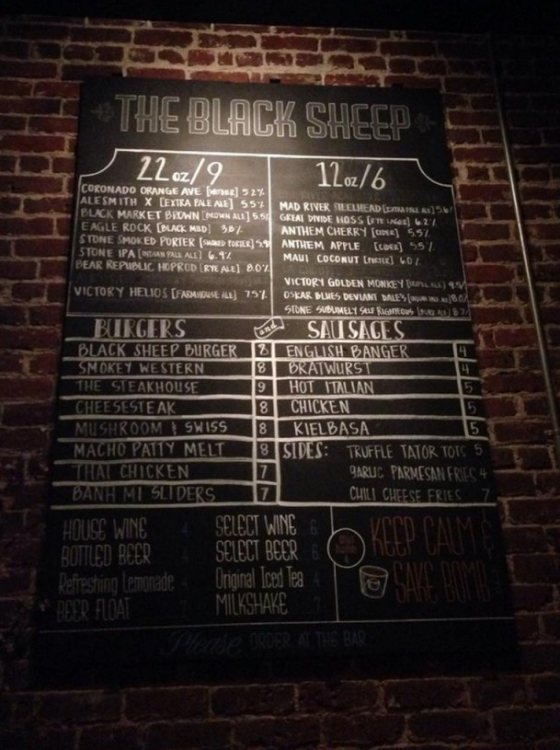 THE BLACK SHEEP
22 oz/9
CORONADO ORANGE AVE. [WITBIER] 5.2%
ALESMITH X [EXTRA PALE ALE] 5.5%
BLACK MARKET BROWN [BROWN ALE] 5.5%
EAGLE ROCK [BLACK MILD] 3.8%
STONE SMOKED PORTER [SMOKED PORTER] 5.9%
STONE IPA [INDIAN PALE ALE] 6.9%
BEAR REPUBLIC HOPROD [RYE ALE] 8.0%
VICTORY HELIOS [FARMHOUSE ALE] 7.5%
12 oz/6
MAD RIVER STEELHEAD [EXTRA PALE ALE] 5.6%
GREAT DIVIDE HOSS [RYE LAGER] 6.2%
ANTHEM CHERRY [CIDER] 5.5%
ANTHEM APPLE [CIDER] 5.5%
MAUI COCONUT [PORTER] 6.0%
VICTORY GOLDEN MONKEY [TRIPEL ALE] 9.5%
OSKAR BLUES DEVIANT DALE'S [INDIAN PALE ALE] 8.0%
STONE SUBLIMELY SELF RIGHTEOUS [PALE ALE] 8.7%
BURGERS
BLACK SHEEP BURGER 8
SMOKEY WESTERN 8
THE STEAKHOUSE 9
CHEESESTEAK 8
MUSHROOM & SWISS 8
MACHO PATTY MELT 8
THAI CHICKEN 7
BANH MI SLIDERS 7
and
SAUSAGES
ENGLISH BANGER 4
BRATWURST 4
HOT ITALIAN 5
CHICKEN 5
KIELBASA 5
SIDES: TRUFFLE TATOR TOTS 5
GARLIC PARMESAN FRIES 4
CHILI CHEESE FRIES 7
HOUSE WINE 4
BOTTLED BEER 4
Refreshing Lemonade 4
BEER FLOAT 7
SELECT WINE 6
SELECT BEER 6
Original Iced Tea 4
MILKSHAKE 7
KEEP CALM &
SAKE BOMB
Please ORDER AT THE BAR